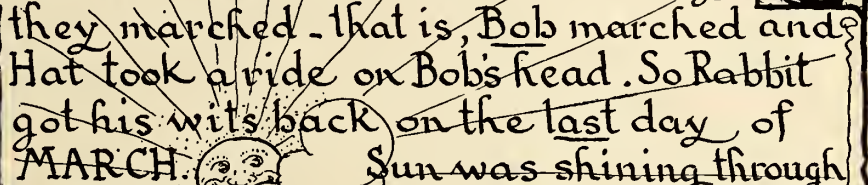 they marched - that is, Bob marched and
Hat took a ride on Bob's head. So Rabbit
got his wits back on the last day of
MARCH. Sun was shining through